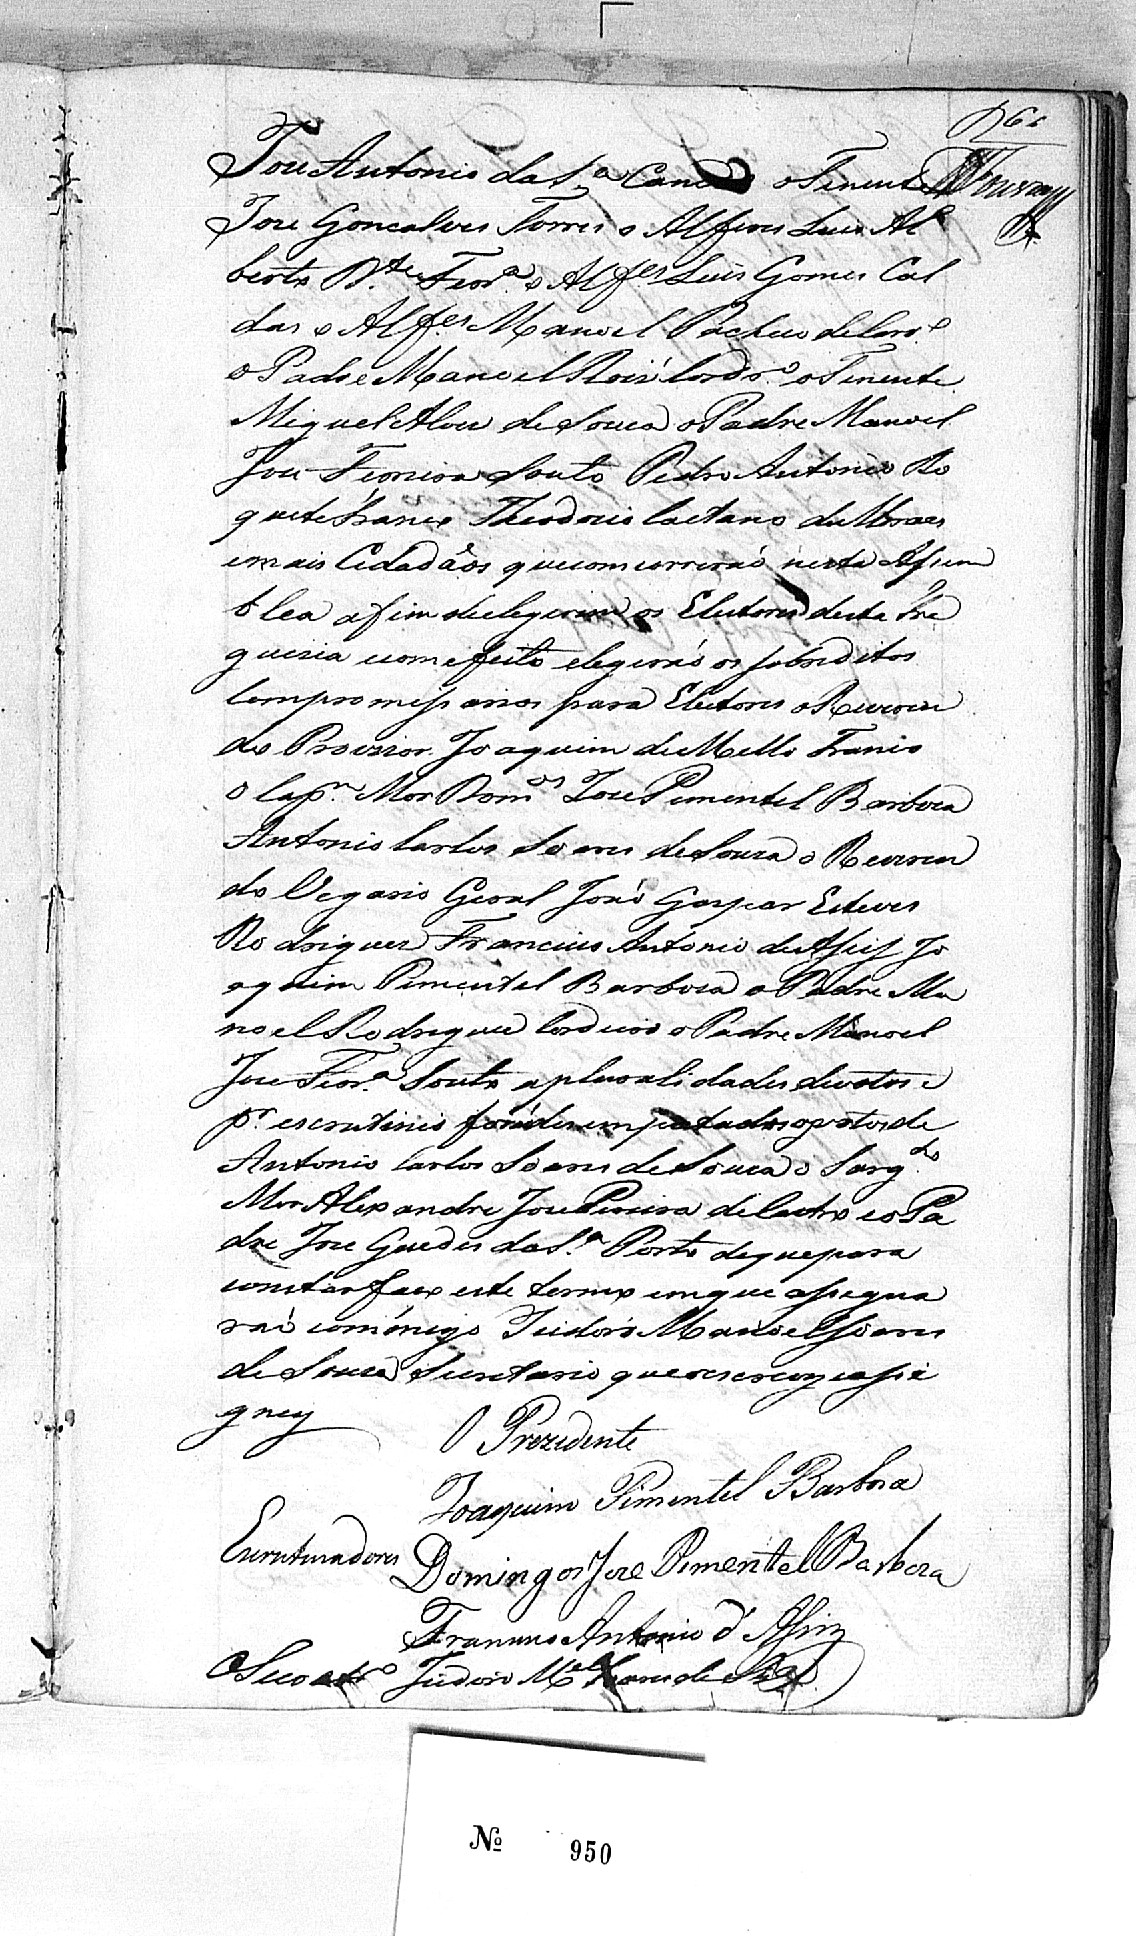 61
Jose Antonio da S.ª o Tenente
Jose Goncalves Torres o Alferes Luis Al
berto D.te Ferr.ª o Alfes Luis Gomes Cal
das o Alfes Manoel Pacheco de
o Padre Manoel Roiz Cordr.o o Tenente
Miguel Alves de Souza o Padre Manoel
Jose Ferreira Souto Pedro Antonio Ro
quete Franco Theodozio Caetano de Moraes
e mais Cidadãos que comcorrerão nesta Assem
blea afim de elegerem os Eleitores desta Fre
guezia e com efeito elegerão os sobreditos
Compromissarios para Eleitores o Reveren
do Provizor Joaquim de Mello Franco
o Cap.m Mor Dom.os Jose Pimentel Barboza
Antonio Carlos Soares de Souza o Reveren
do Vegario Geral João Gaspar Esteves
Rodrigues Francisco Antonio de Assis Jo
aquim Pimentel Barboza o Padre Ma
noel Rodrigues Cordeiro o Padre Manoel
Jose Ferr.ª Souto a pluralidades de votos e
p.r escrutinio forão desempatados os votos de
Antonio Carlos Soares de Souza o Sarg.to
Mor Alexandre Jose Pereira de Castro e o Pa
dre Jose Guedes da S.ª Porto de que para
constar faço este termo em que assegna
rão comigo Izidoro Manoel Soares
de Souza Secretario que o escrevy e assi
gney
O Prezidente
Joaquim Pimentel Barboza
Escrutinadores Domingos Jose Pimentel Barboza
Francisco Antonio d'Assiz
O Secretr.o Izidoro M.el Soares de Sz.ª
№ 950